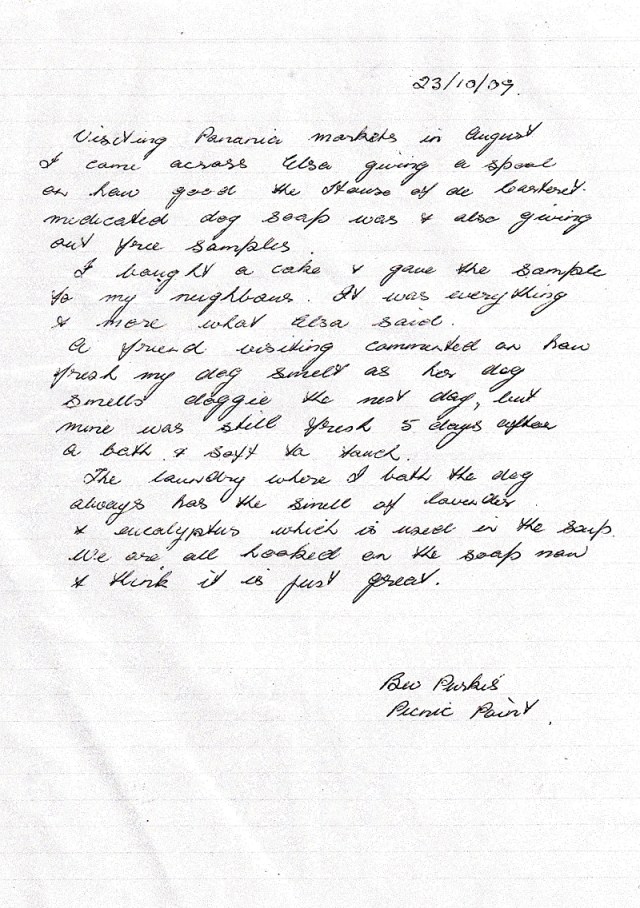 23/10/09.
Visiting Panania markets in August
I came across Elsa giving a speal
on how good the House of de
medicated dog soap was & also giving
out free samples.
I bought a cake & gave the sample
to my neighbour. It was everything
& more what Elsa said.
A friend visiting commented on how
fresh my dog smelt as her dog
smells doggie the next day, but
mine was still fresh 5 days after
a bath & soft to touch.
The laundry where I bath the dog
always has the smell of lavender
& eucalyptus which is used in the soap.
We are all hooked on the soap now
& think it is just great.
Bev
Picnic Point.